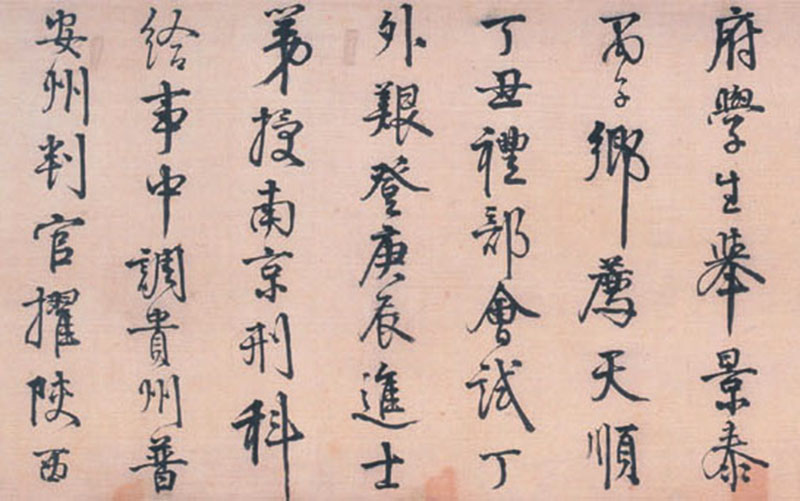 府學生舉景泰
丙子鄉薦天順
丁丑禮部會試丁
外艱登庚辰進士
第授南京刑科
給事中調貴州普
安州判官擢陝西